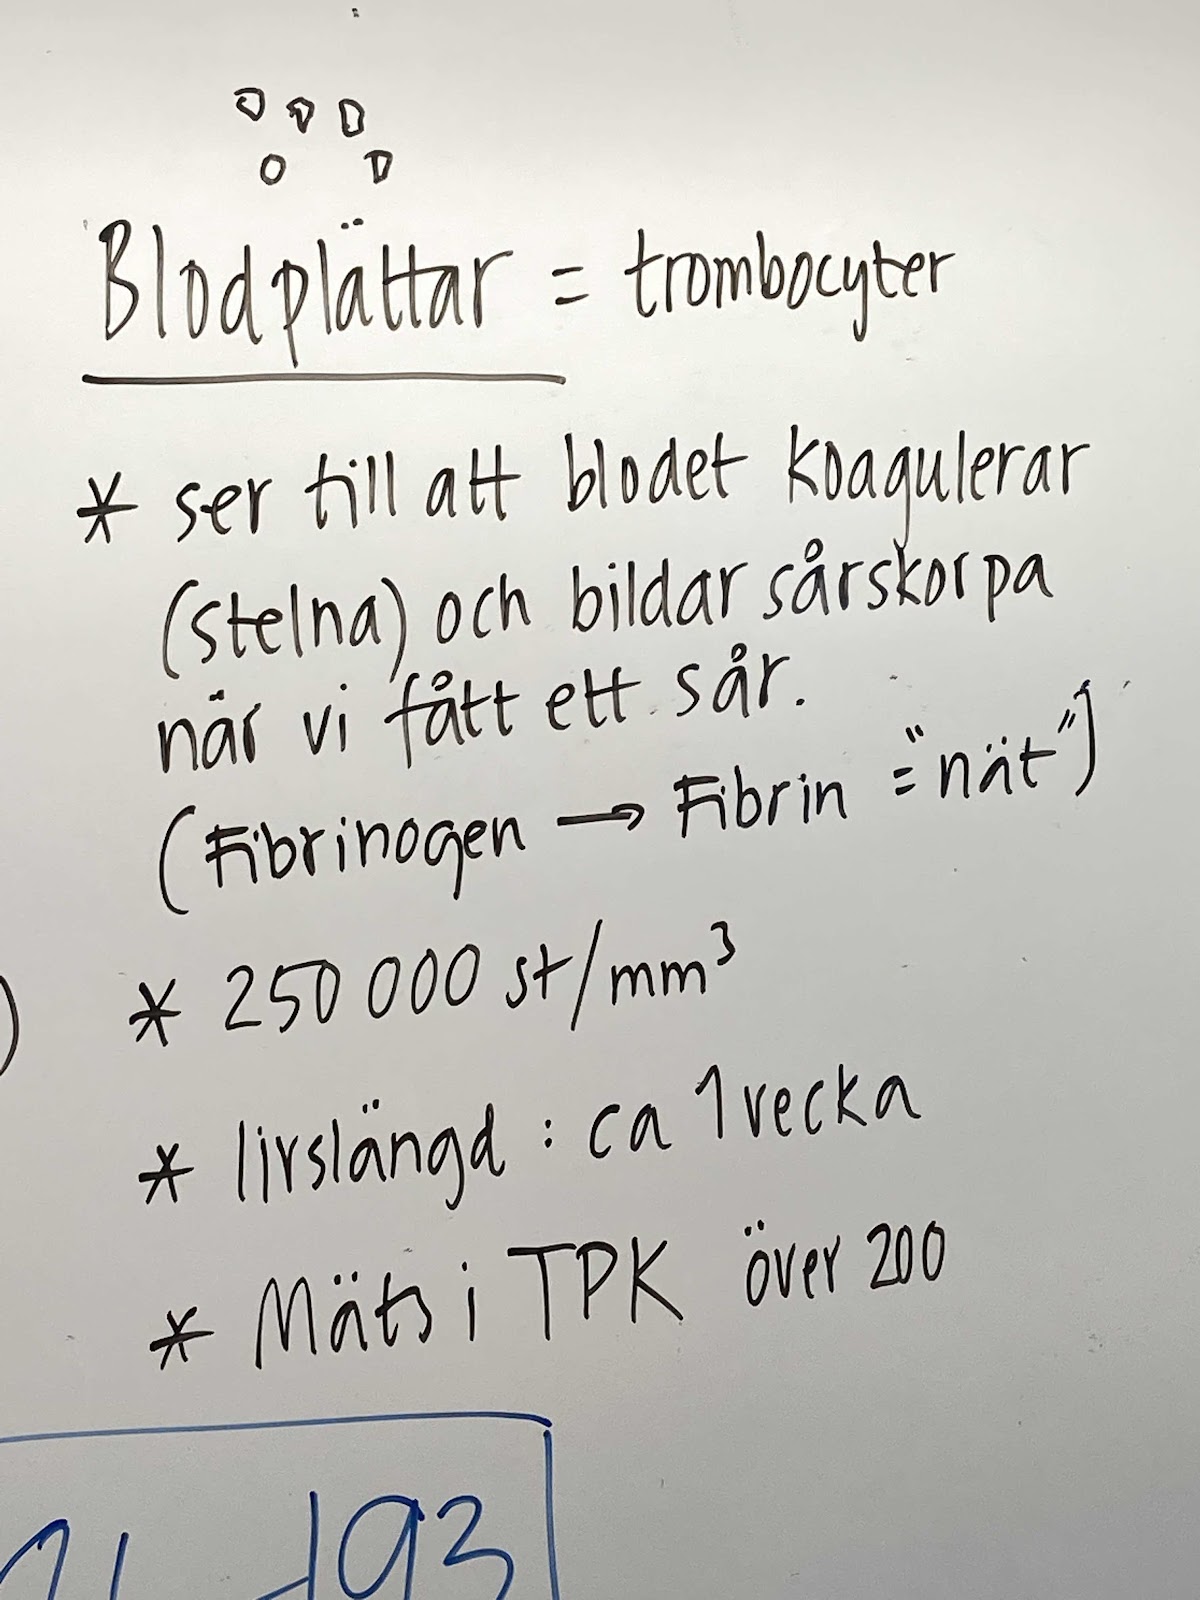 Blodplättar = trombocyter
* ser till att blodet koagulerar
(stelna) och bildar sårskorpa
när vi fått ett sår.
(Fibrinogen → Fibrin = "nät")
* 250 000 st/mm³
* livslängd : ca 1 vecka
* Mäts i TPK över 200
193